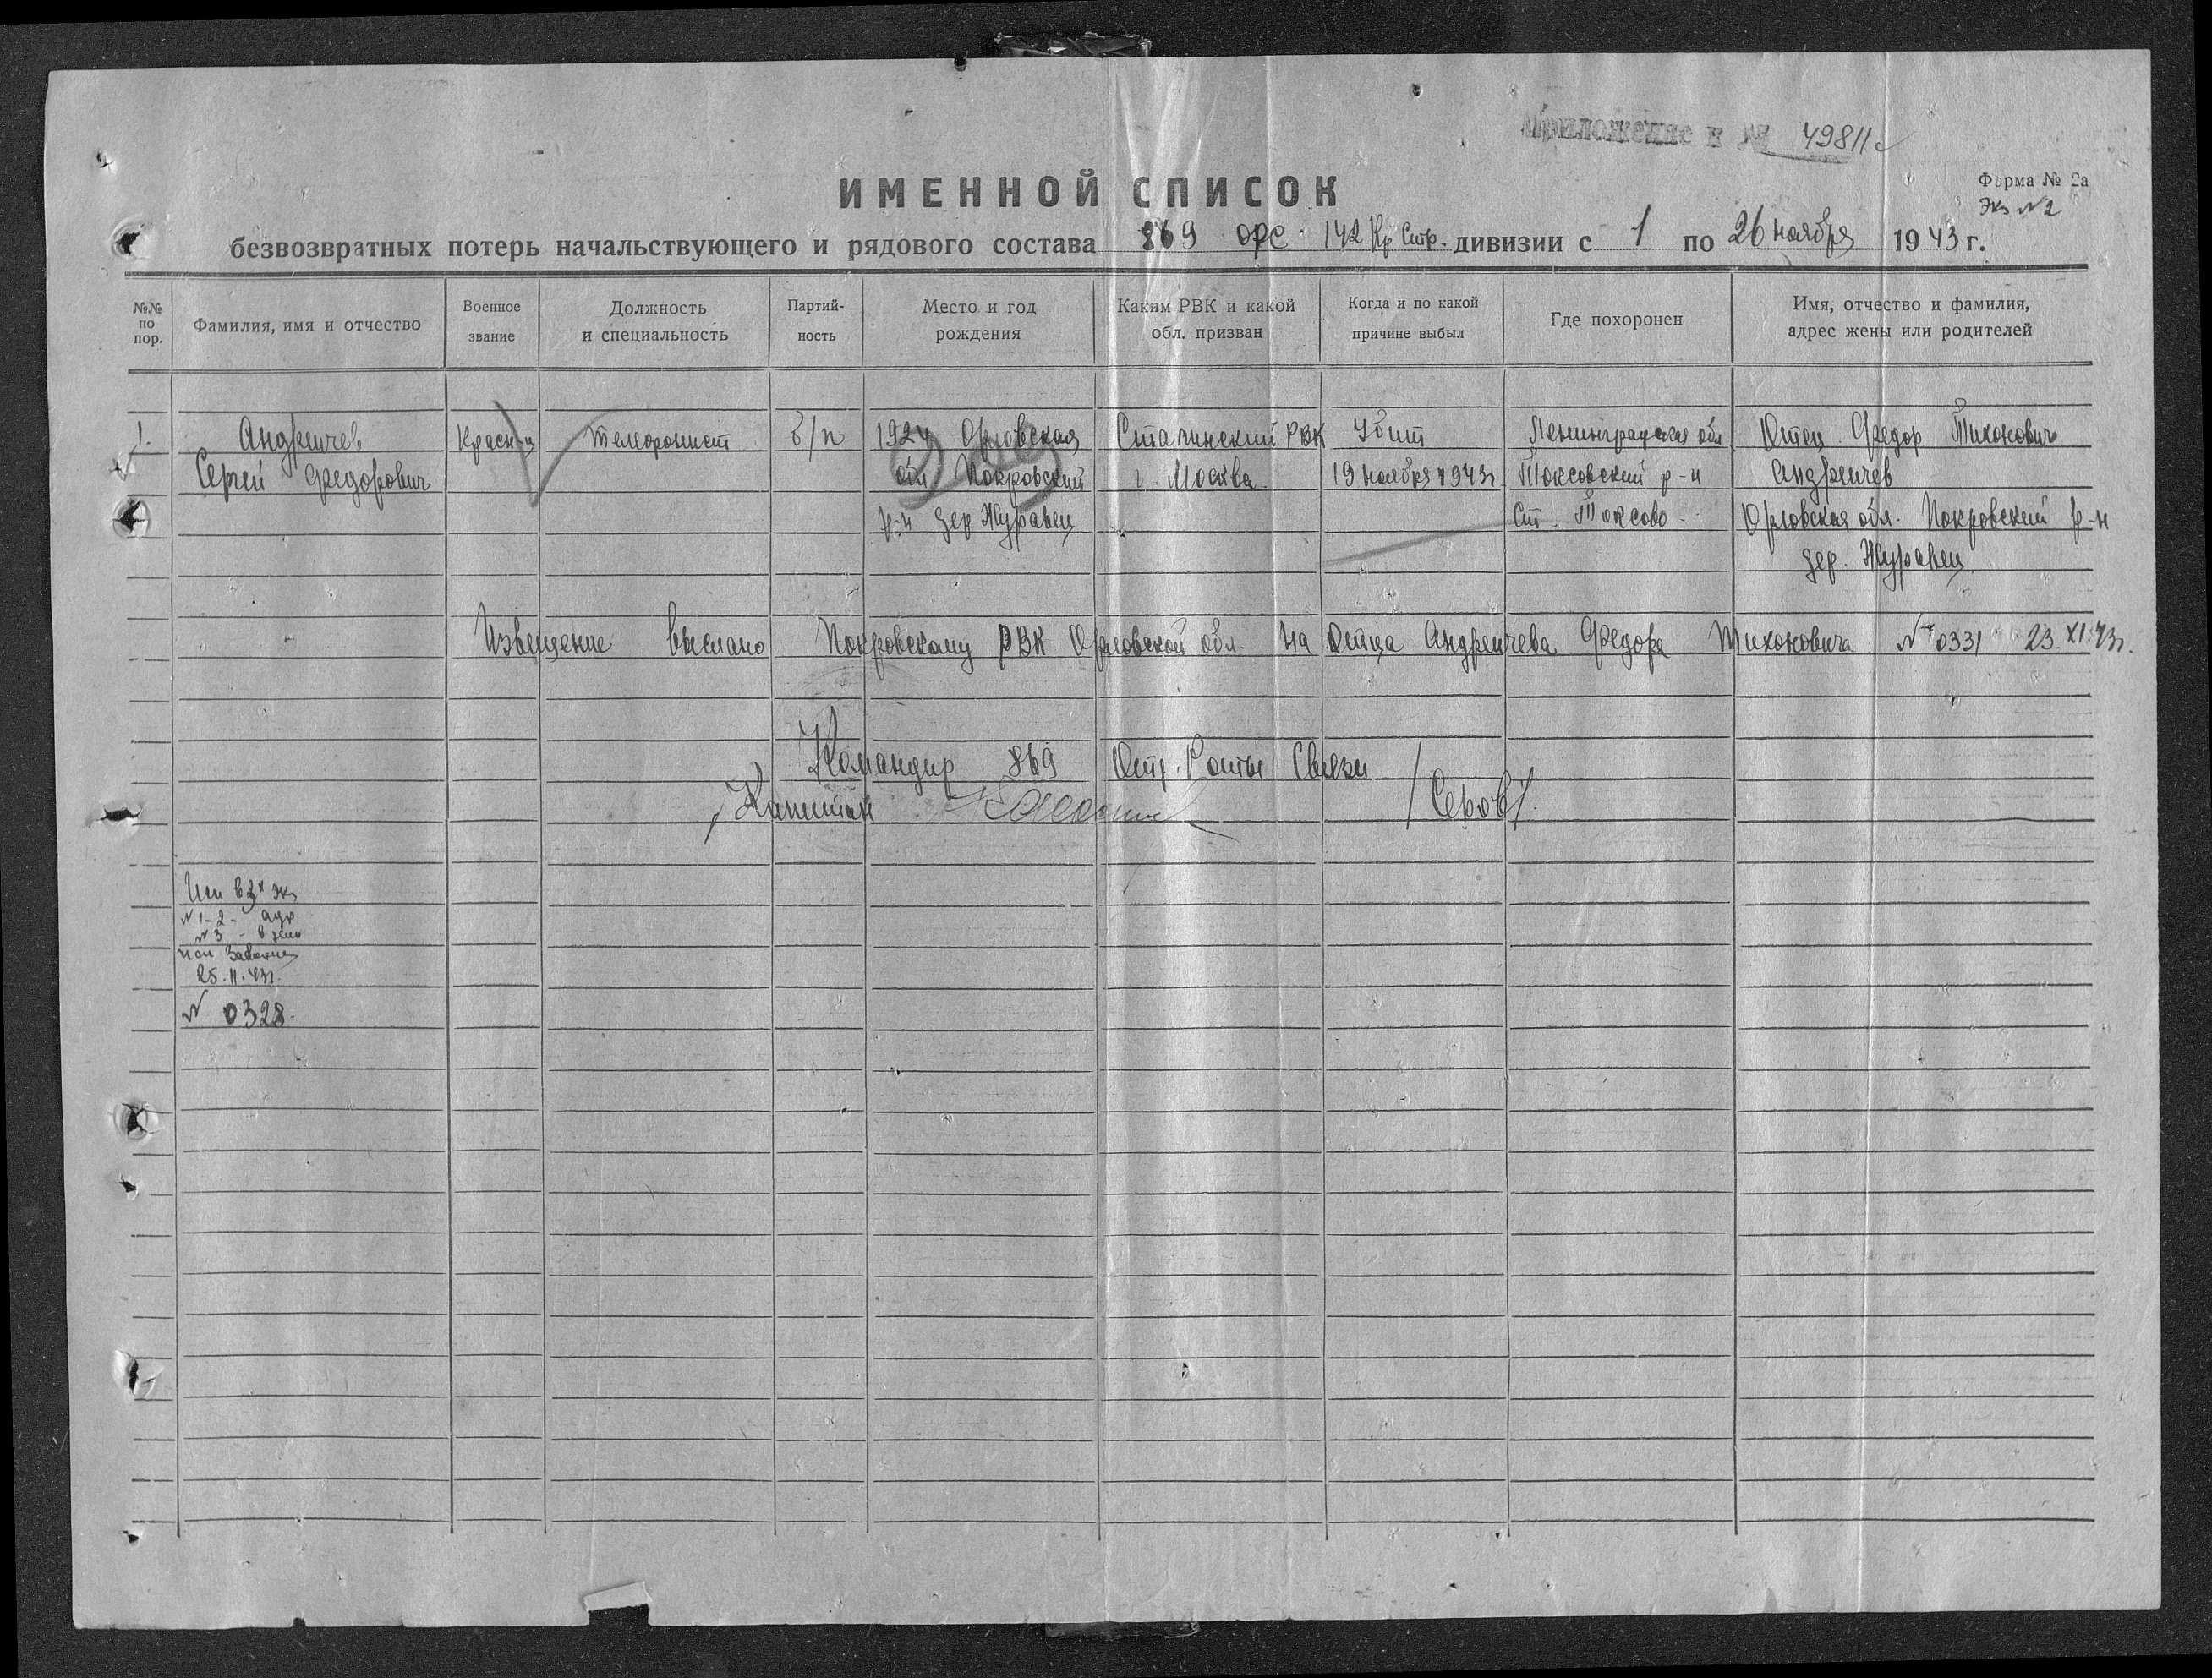 Приложение к № 49811с
ИМЕННОЙ СПИСОК
Форма № 2а
Экз №2
безвозвратных потерь начальствующего и рядового состава 869 орс 142 Кр Стр. дивизии с 1 по 26 ноября 1943 г.
№№ по пор.
Фамилия, имя и отчество
Военное звание
Должность и специальность
Партий-ность
Место и год рождения
Каким РВК и какой обл. призван
Когда и по какой причине выбыл
Где похоронен
Имя, отчество и фамилия, адрес жены или родителей
1. Андреичев Красн-ц Телефонист б/п 1924 Орловская Сталинский РВК Убит Ленинградская обл Отец Федор Тихонович
Сергей Федорович обл Покровский г Москва 19 ноября 1943г Токсовский р-н Андреичев
р-н дер Журавец Ст. Токсово Орловская обл. Покровский р-н
дер. Журавец
Извещение выслано Покровскому РВК Орловской обл. на Отца Андреичева Федора Тихоновича № 0331 23.XI.43г.
Командир 869 Отд. Роты Связи
Капитан /Серов/.
Исп в 3х экз
№ 1-2- адр
№ 3 - в дело
исп
25.11.43г.
№ 0328.